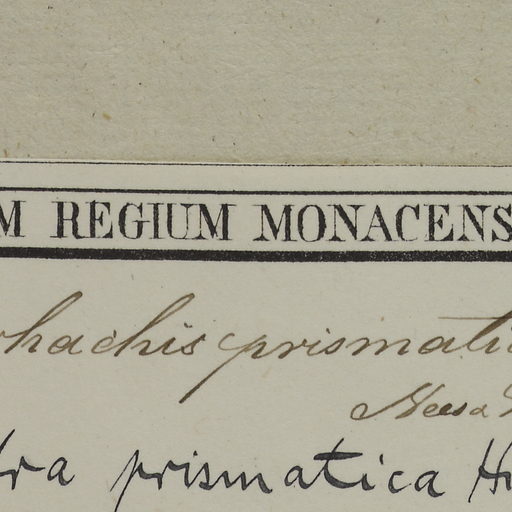 M REGIUM MONACENS
rhachis prismati
Nees
ra prismatica H